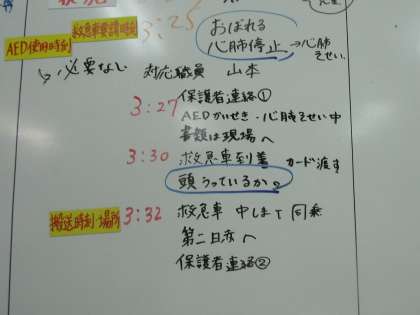 救急車要請時刻 3:25
おぼれる
心肺停止 →心肺そせい
AED使用時刻
↳必要なし 対応職員 山本
3:27 保護者連絡①
AEDかいせき・心肺そせい中
書類は現場へ
3:30 救急車到着 カード渡す
頭うっているか。
搬送時刻・場所 3:32 救急車 中しまて 同乗
第二日赤へ
保護者連絡②